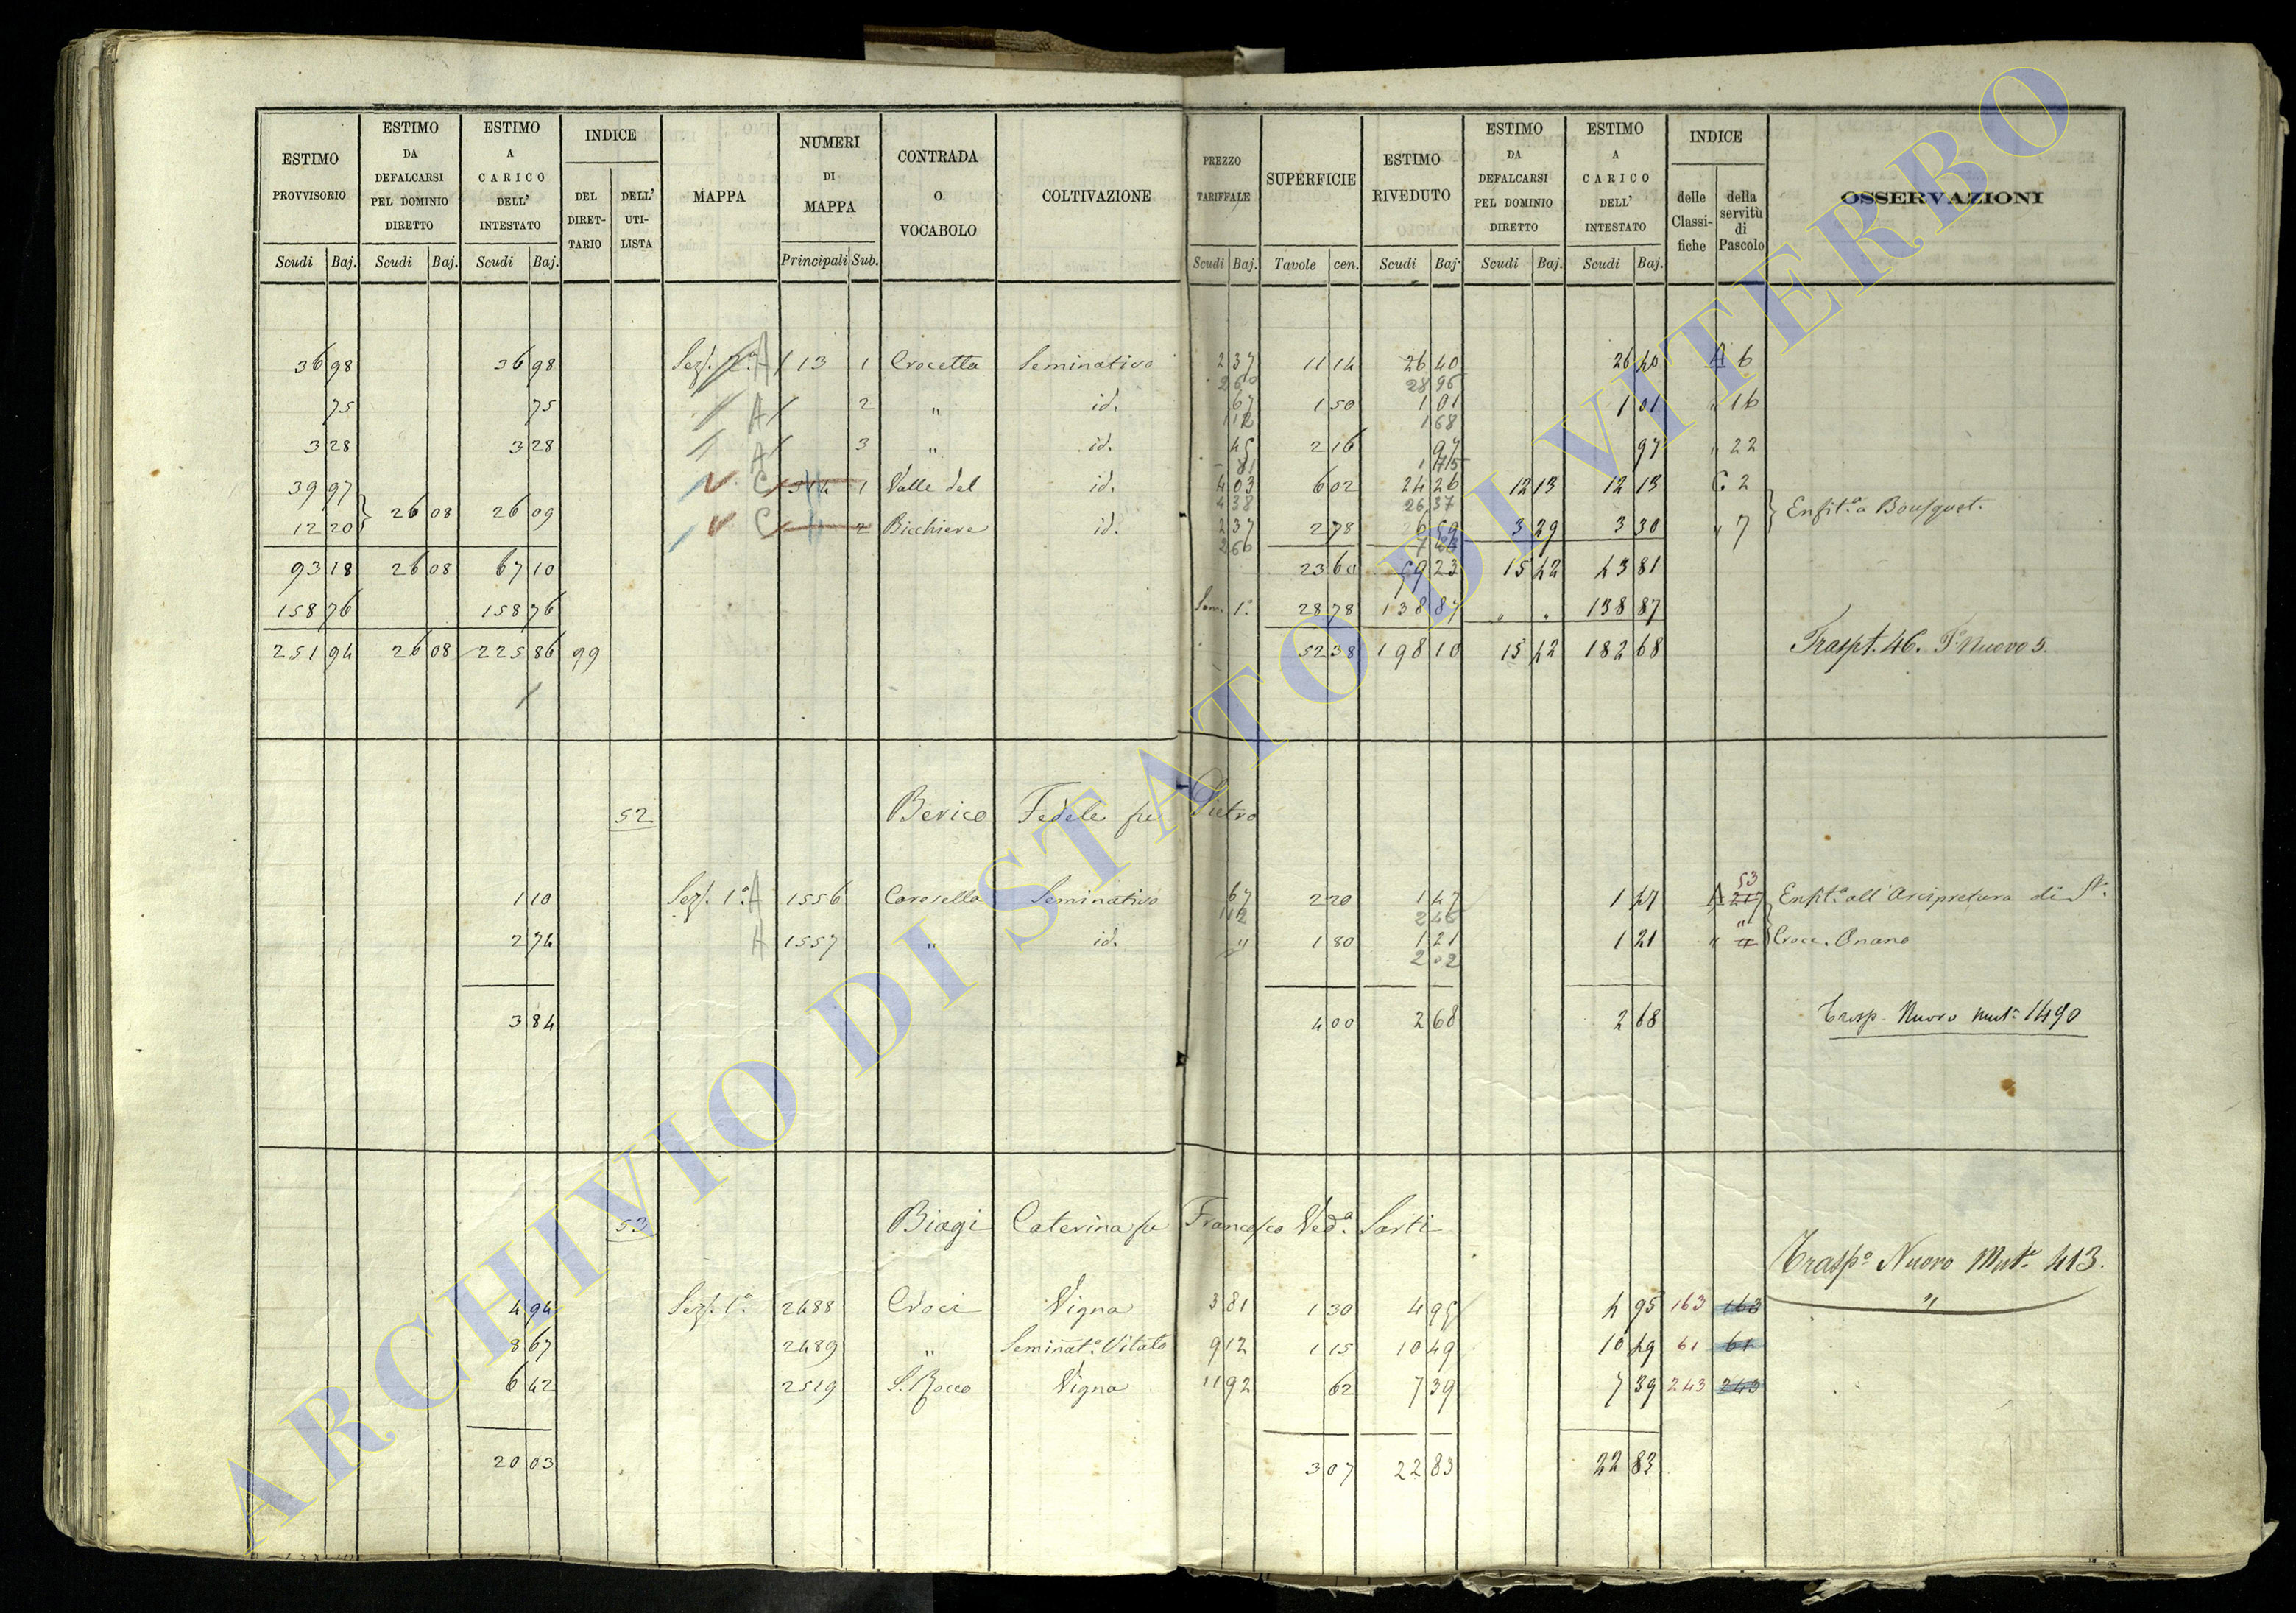 ESTIMO PROVVISORIO | ESTIMO DA DEFALCARSI PEL DOMINIO DIRETTO | ESTIMO A CARICO DELL' INTESTATO | INDICE | MAPPA | NUMERI DI MAPPA | CONTRADA O VOCABOLO | COLTIVAZIONE | PREZZO TARIFFALE | SUPERFICIE | ESTIMO RIVEDUTO | ESTIMO DA DEFALCARSI PEL DOMINIO DIRETTO | ESTIMO A CARICO DELL' INTESTATO | INDICE | OSSERVAZIONI
DEL DIRET-TARIO | DELL' UTI-LISTA | delle Classi-fiche | della servitù di Pascolo
Scudi Baj. | Scudi Baj. | Scudi Baj. | Principali Sub. | Scudi Baj. | Tavole cen. | Scudi Baj. | Scudi Baj. | Scudi Baj.
36 98 | 36 98 | Sez. A | 113 | 1 | Crocetta | Seminativo | 2 37 | 11 14 | 26 40 | 26 40 | A 6
28 96
75 | 75 | A | 2 | " | id. | 67 | 1 50 | 1 01 | 1 01 | " 16
112 | 1 68
3 28 | 3 28 | A | 3 | " | id. | 45 | 2 16 | 97 | 97 | " 22
81 | 1 75
39 97 | C | 314 | 1 | Valle del | id. | 4 03 | 6 02 | 24 26 | 12 13 | 12 13 | C. 2
26 08 | 26 09 | 4 38 | 26 37 | Enfit.a a Bousquet.
12 20 | C | 2 | Bicchiere | id. | 2 37 | 2 78 | 6 59 | 3 29 | 3 30 | " 7
2 66
93 18 | 26 08 | 67 10 | 23 60 | 59 23 | 15 42 | 43 81
158 76 | 158 76 | Som. 1a | 28 78 | 138 87 | " " | 138 87
251 94 | 26 08 | 225 86 | 99 | 52 38 | 198 10 | 15 42 | 182 68 | Traspt. 46. T. Nuovo 5.
52 | Berico Fedele fu Pietro
53
1 10 | Sez. 1.a A | 1556 | Carosella | Seminativo | 67 | 2 20 | 1 47 | 1 47 | A 217 | Enfit.a all'Arcipretura di S.
112 | 2 46
2 74 | A | 1557 | " | id. | " | 1 80 | 1 21 | 1 21 | " " | Croce. Onano
2 02
3 84 | 4 00 | 2 68 | 2 68 | Trasp. Nuovo mut.a 1490
53 | Biagi Caterina fu Francesco Ved.a Sarti
Trasp.o Nuovo Mut.a 413.
4 94 | Sez. 1.a | 2488 | Croci | Vigna | 3 81 | 1 30 | 4 95 | 4 95 | 163 | 163
8 67 | 2489 | " | Seminat.o Vitato | 9 12 | 1 15 | 10 49 | 10 49 | 61 | 61
6 42 | 2519 | S. Rocco | Vigna | 11 92 | 62 | 7 39 | 7 39 | 243 | 243
20 03 | 3 07 | 22 83 | 22 83
ARCHIVIO DI STATO DI VITERBO